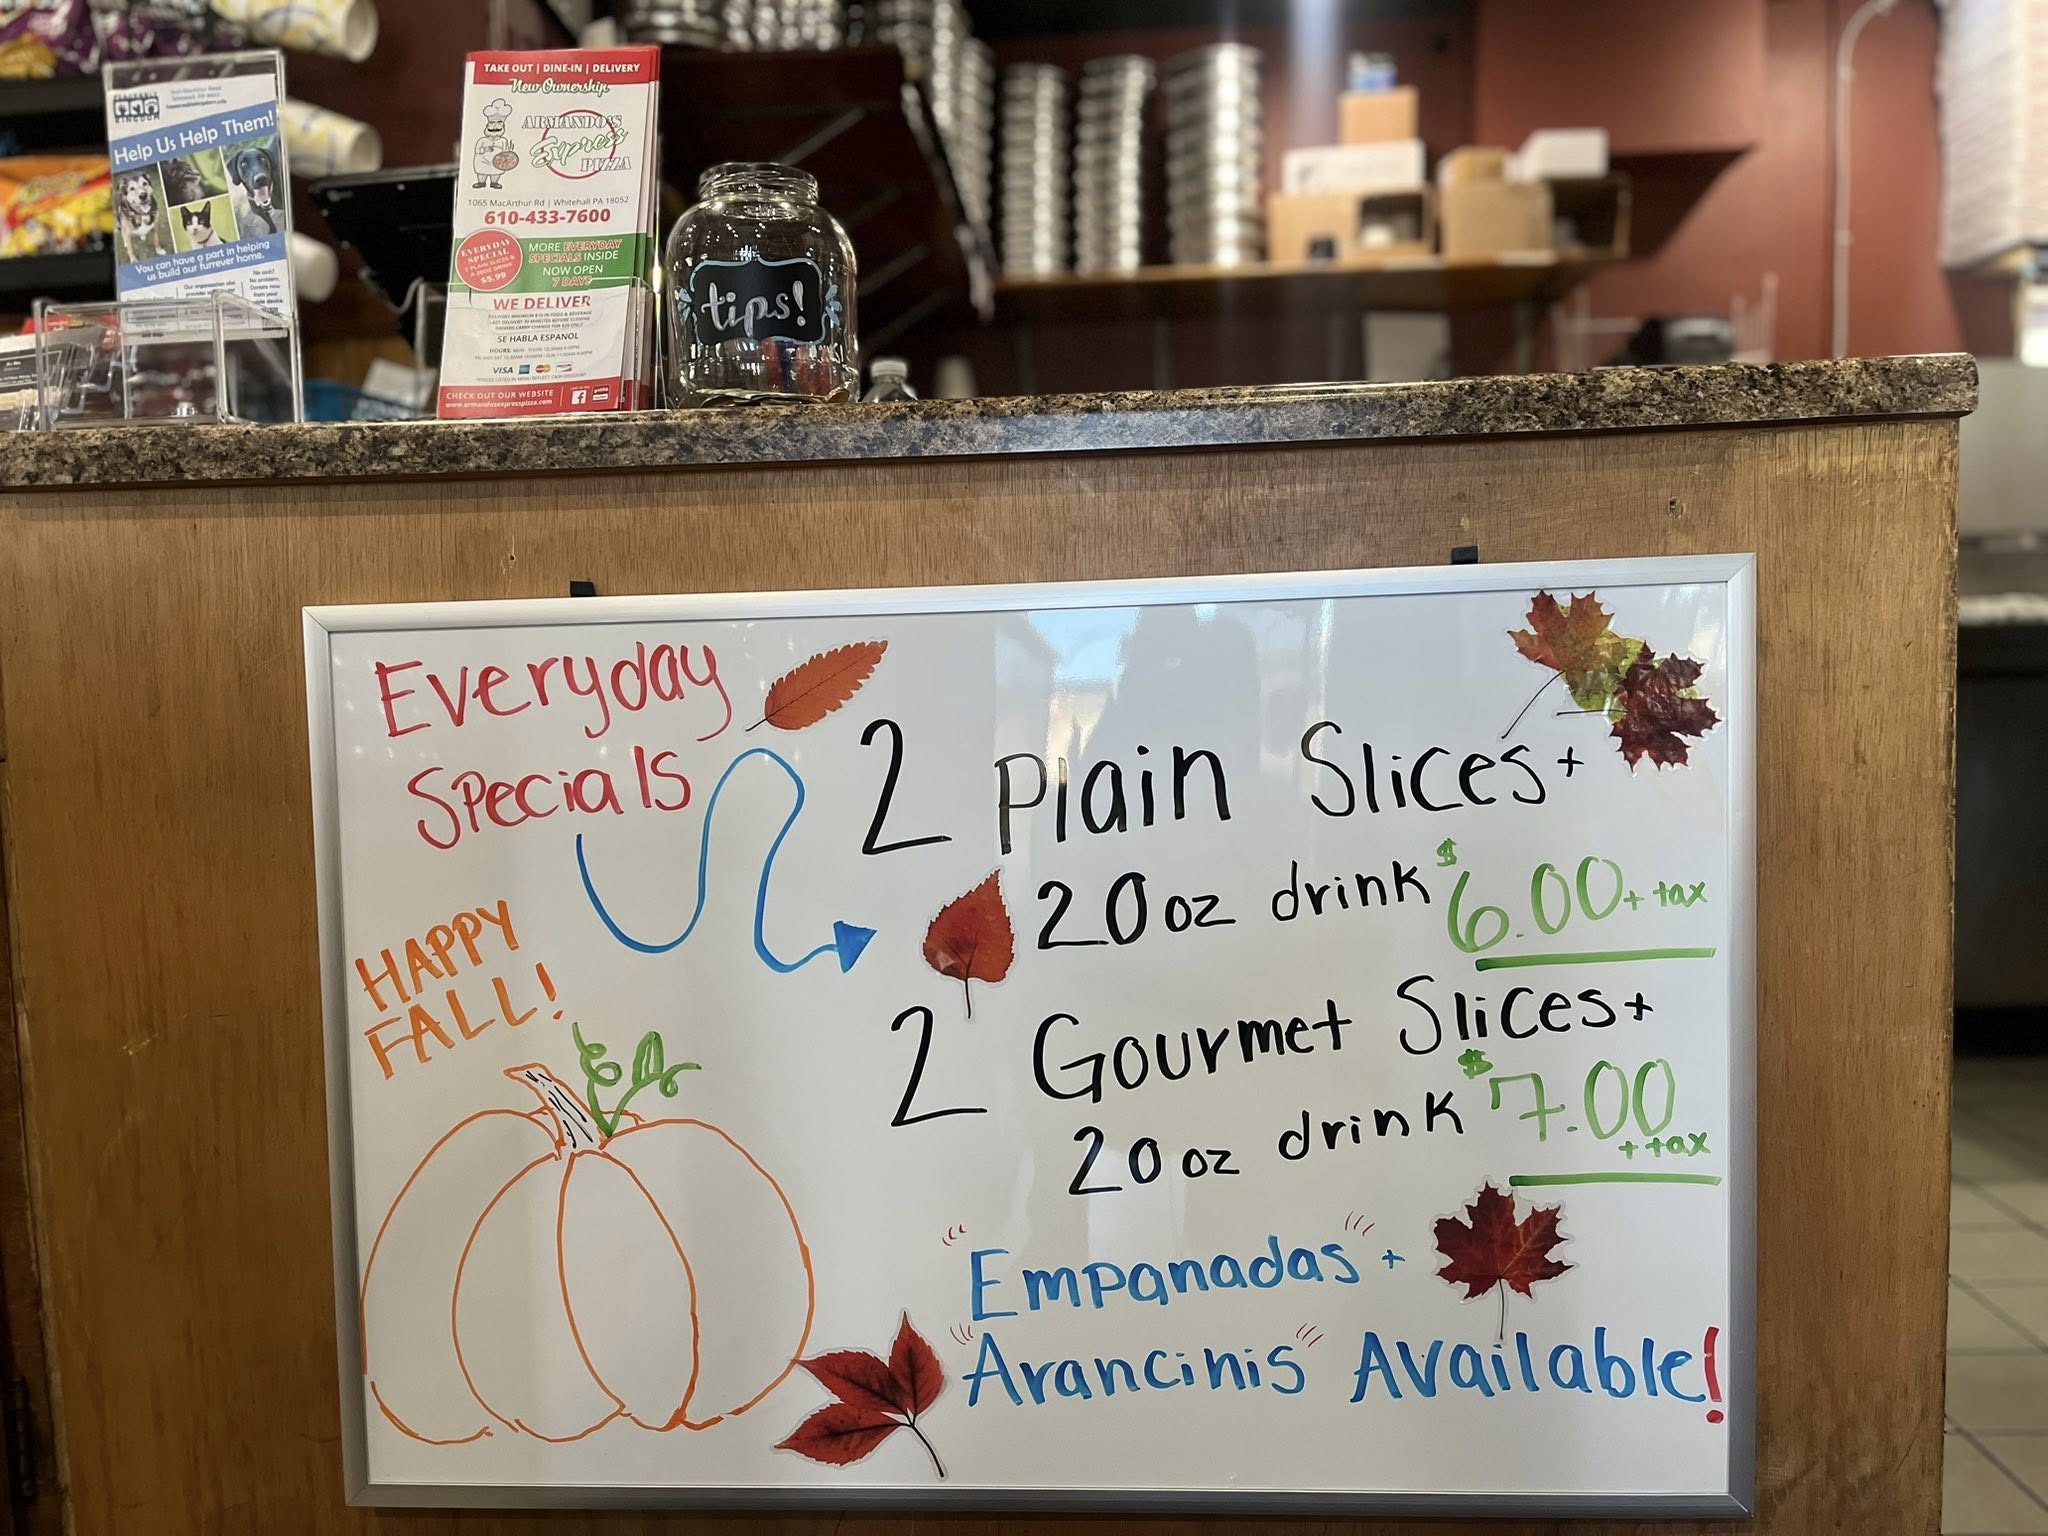 Help Us Help Them!
You can have a part in helping
us build our furrever home.
TAKE OUT | DINE-IN | DELIVERY
New Ownership
ARMANDO'S
Express
PIZZA
1065 MacArthur Rd | Whitehall PA 18052
610-433-7600
EVERYDAY
SPECIAL
2 PLAIN SLICES &
$5.99
MORE EVERYDAY
SPECIALS INSIDE
NOW OPEN
7 DAYS
WE DELIVER
SE HABLA ESPANOL
VISA
CHECK OUT OUR WEBSITE
www.armandosexpresspizza.com
tips!
Everyday
Specials
2 Plain Slices +
20 oz drink $6.00 + tax
2 Gourmet Slices +
20 oz drink $7.00
+ tax
HAPPY
FALL!
"Empanadas" +
"Arancinis" Available!